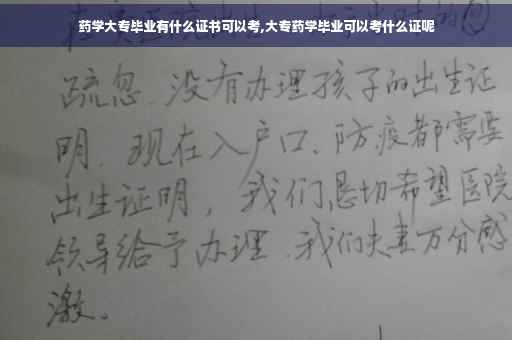 药学大专毕业有什么证书可以考,大专药学毕业可以考什么证呢
疏忽、没有办理孩子的出生证
明、现在入户口、防疫都需要
出生证明，我们恳切希望医院
领导给予办理、我们夫妻万分感
激。